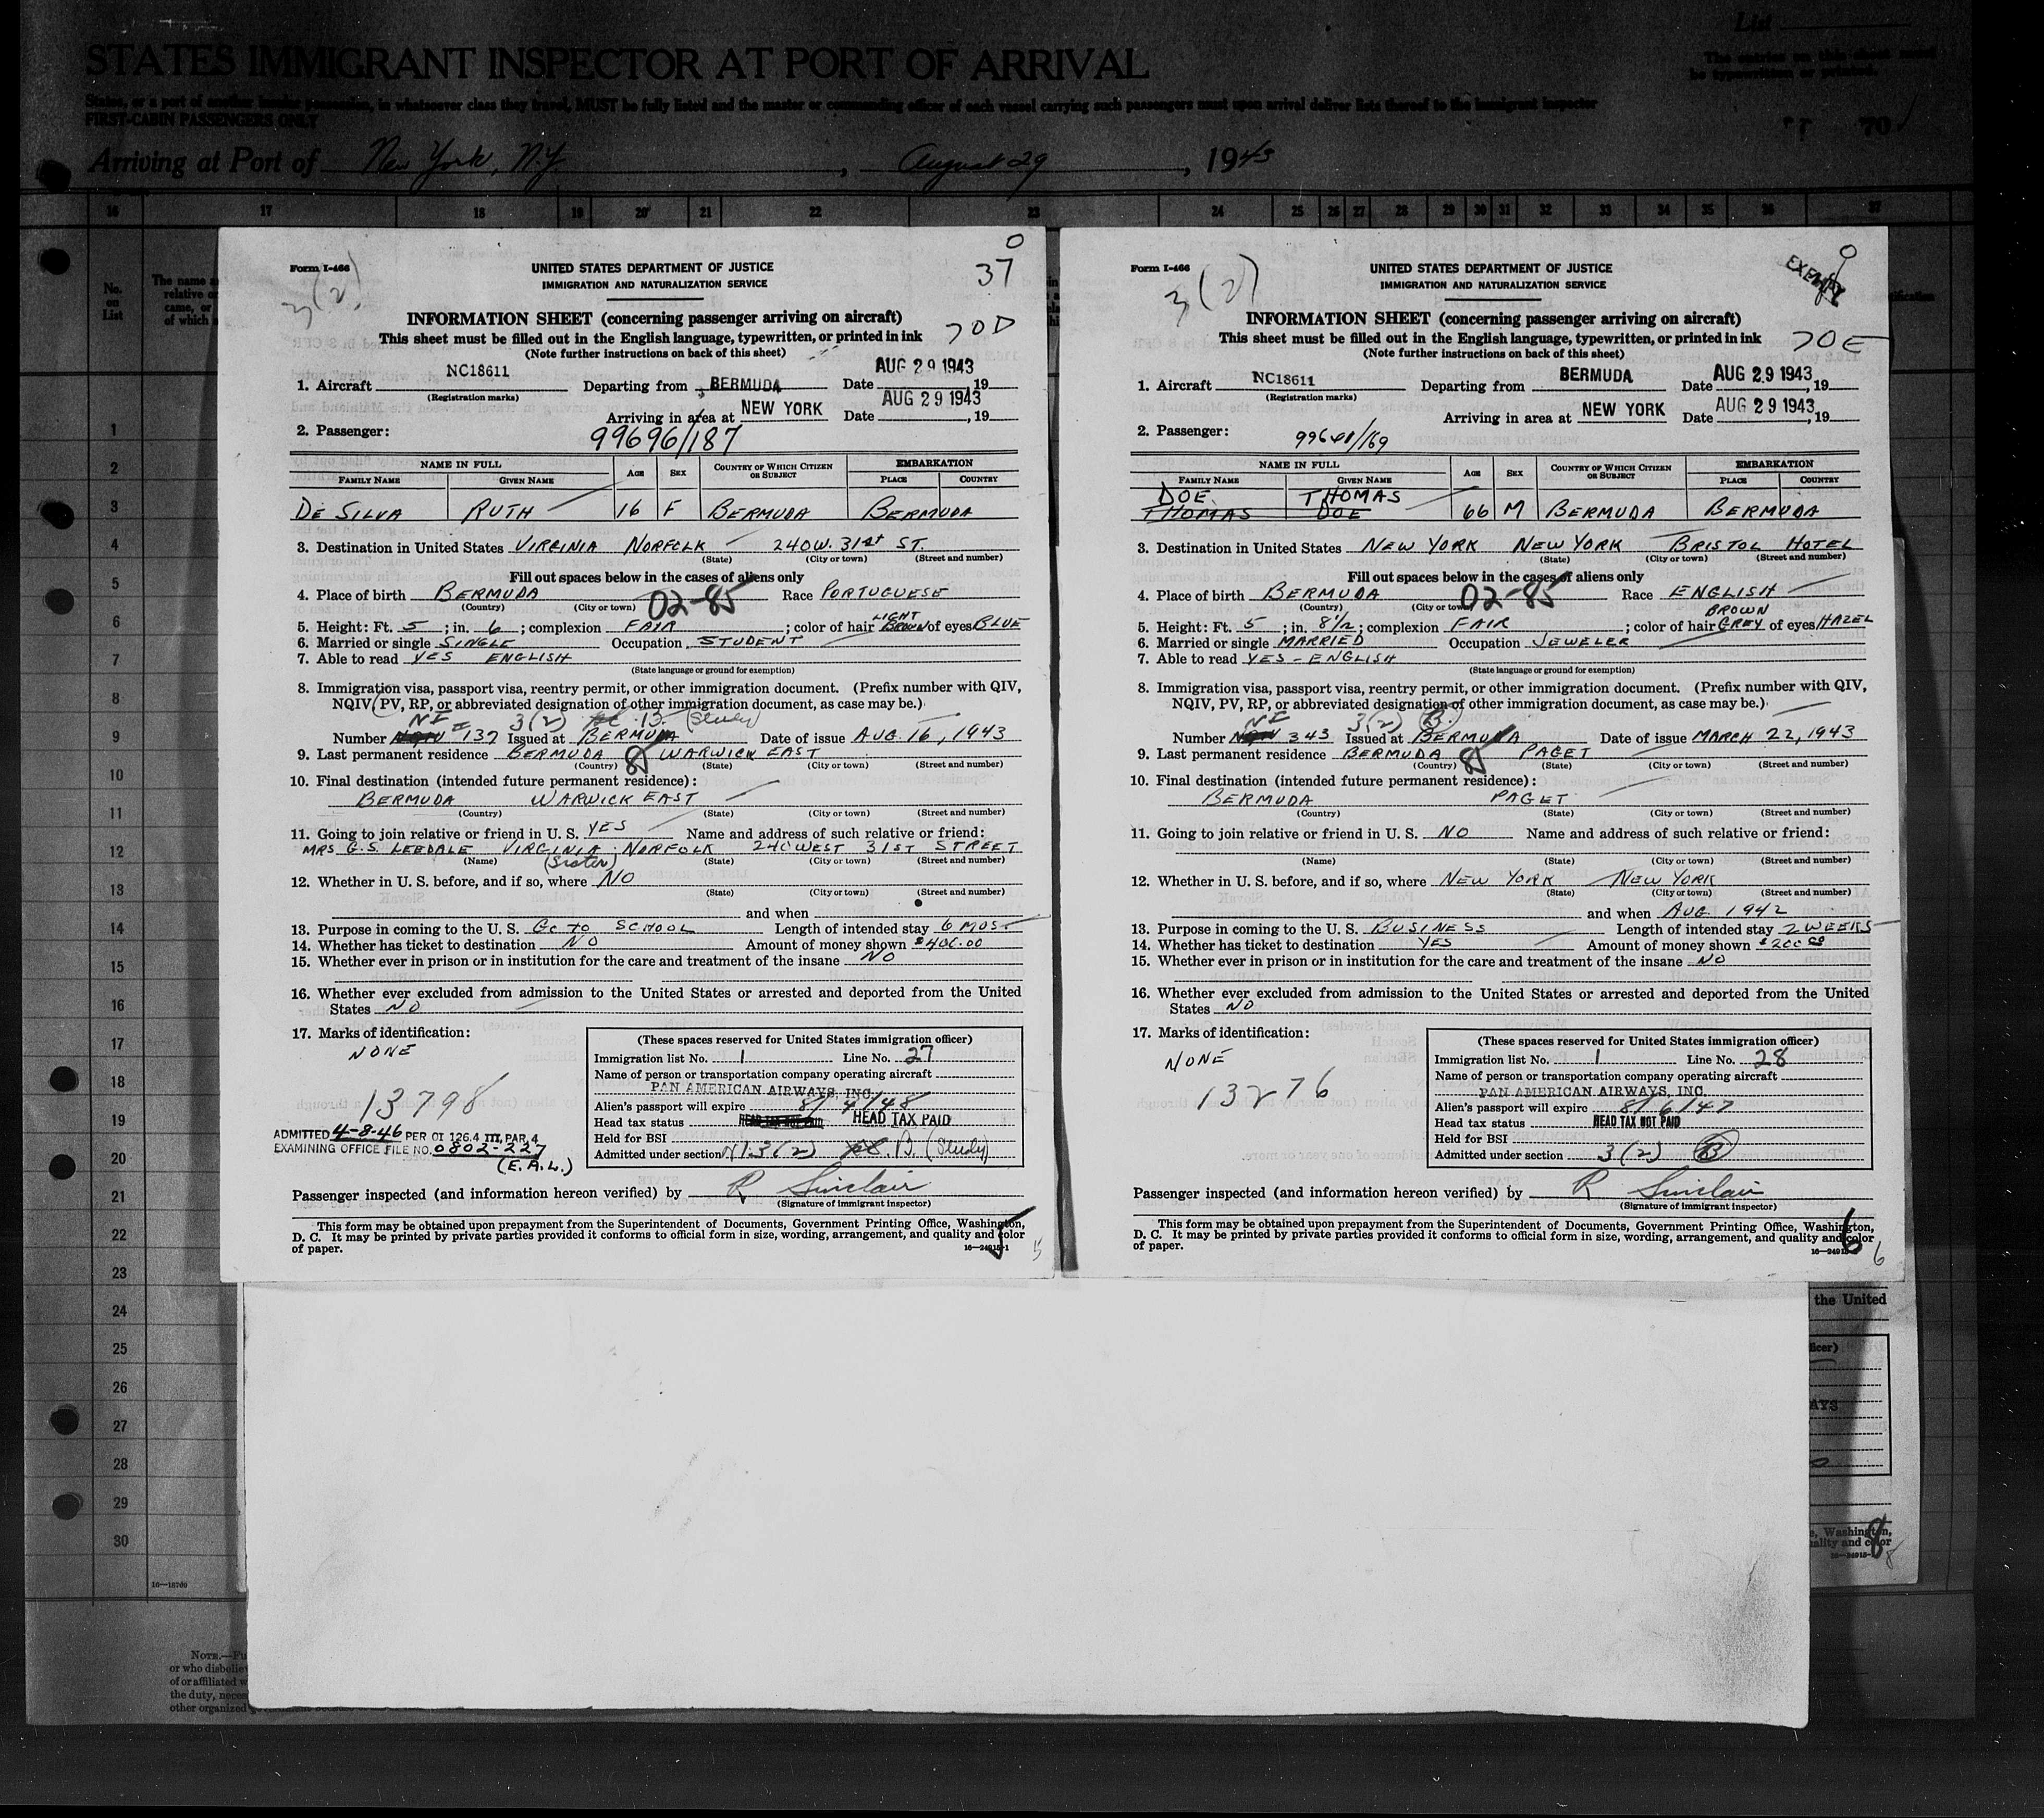 STATES IMMIGRANT INSPECTOR AT PORT OF ARRIVAL
List
The entries on this sheet must
be typewritten or printed.
States, or a port of another insular possession, in whatsoever class they travel, MUST be fully listed and the master or commanding officer of each vessel carrying such passengers must upon arrival deliver lists thereof to the immigrant inspector
FIRST-CABIN PASSENGERS ONLY
70
Arriving at Port of New York, N.Y. , August 29 , 1943
16 17 18 19 20 21 22 23 24 25 26 27 28 29 30 31 32 33 34 35 36 37
No.
on
List
1
2
3
4
5
6
7
8
9
10
11
12
13
14
15
16
17
18
19
20
21
22
23
24
25
26
27
28
29
30
16—18700
NOTE.—Fu
or who disbelie
of or affiliated w
the duty, neces
other organized
0
37
Form I-466
3(2)
UNITED STATES DEPARTMENT OF JUSTICE
IMMIGRATION AND NATURALIZATION SERVICE
INFORMATION SHEET (concerning passenger arriving on aircraft)
70D
This sheet must be filled out in the English language, typewritten, or printed in ink
(Note further instructions on back of this sheet)
1. Aircraft NC18611 Departing from BERMUDA Date AUG 29 1943, 19
(Registration marks)
Arriving in area at NEW YORK Date AUG 29 1943, 19
2. Passenger: 99696/187
NAME IN FULL AGE SEX COUNTRY OF WHICH CITIZEN OR SUBJECT EMBARKATION
FAMILY NAME GIVEN NAME PLACE COUNTRY
DE SILVA RUTH 16 F BERMUDA BERMUDA
3. Destination in United States VIRGINIA NORFOLK 240 W. 31st ST.
(State) (City or town) (Street and number)
Fill out spaces below in the cases of aliens only
4. Place of birth BERMUDA 02-85 Race PORTUGUESE
(Country) (City or town)
5. Height: Ft. 5 ; in. 6 ; complexion FAIR ; color of hair LIGHT BROWN of eyes BLUE
6. Married or single SINGLE Occupation STUDENT
7. Able to read YES ENGLISH
(State language or ground for exemption)
8. Immigration visa, passport visa, reentry permit, or other immigration document. (Prefix number with QIV,
NQIV, PV, RP, or abbreviated designation of other immigration document, as case may be.)
NI 3(2) 13. (Study)
Number 137 Issued at BERMUDA Date of issue AUG. 16, 1943
9. Last permanent residence BERMUDA 85 WARWICK EAST
(Country) (State) (City or town) (Street and number)
10. Final destination (intended future permanent residence):
BERMUDA WARWICK EAST
(Country) (State) (City or town) (Street and number)
11. Going to join relative or friend in U. S. YES Name and address of such relative or friend:
MRS G.S. LEEDALE VIRGINIA NORFOLK 240 WEST 31ST STREET
(Name) (Sister) (State) (City or town) (Street and number)
12. Whether in U. S. before, and if so, where NO
(State) (City or town) (Street and number)
and when
13. Purpose in coming to the U. S. GO TO SCHOOL Length of intended stay 6 MOS
14. Whether has ticket to destination NO Amount of money shown $400.00
15. Whether ever in prison or in institution for the care and treatment of the insane NO
16. Whether ever excluded from admission to the United States or arrested and deported from the United
States NO
17. Marks of identification:
NONE
13798
ADMITTED 4-8-46 PER OI 126.4 III, PAR. 4
EXAMINING OFFICE FILE NO. 0802-227
(E.A.L.)
(These spaces reserved for United States immigration officer)
Immigration list No. 1 Line No. 27
Name of person or transportation company operating aircraft
PAN AMERICAN AIRWAYS, INC.
Alien's passport will expire 8/4/48
Head tax status HEAD TAX NOT PAID HEAD TAX PAID
Held for BSI
Admitted under section 3(2) B. (Study)
Passenger inspected (and information hereon verified) by R Sinclair
(Signature of immigrant inspector)
This form may be obtained upon prepayment from the Superintendent of Documents, Government Printing Office, Washington,
D. C. It may be printed by private parties provided it conforms to official form in size, wording, arrangement, and quality and color
of paper.
16—24915-1
5
5
0
EXEMPT
Form I-466
3(2)
UNITED STATES DEPARTMENT OF JUSTICE
IMMIGRATION AND NATURALIZATION SERVICE
INFORMATION SHEET (concerning passenger arriving on aircraft)
70E
This sheet must be filled out in the English language, typewritten, or printed in ink
(Note further instructions on back of this sheet)
1. Aircraft NC18611 Departing from BERMUDA Date AUG 29 1943, 19
(Registration marks)
Arriving in area at NEW YORK Date AUG 29 1943, 19
2. Passenger:
NAME IN FULL AGE SEX COUNTRY OF WHICH CITIZEN OR SUBJECT EMBARKATION
FAMILY NAME GIVEN NAME PLACE COUNTRY
DOE THOMAS
THOMAS DOE 66 M BERMUDA BERMUDA
3. Destination in United States NEW YORK NEW YORK BRISTOL HOTEL
(State) (City or town) (Street and number)
Fill out spaces below in the cases of aliens only
4. Place of birth BERMUDA 02-85 Race ENGLISH
(Country) (City or town)
5. Height: Ft. 5 ; in. 8 1/2 ; complexion FAIR ; color of hair BROWN GREY of eyes HAZEL
6. Married or single MARRIED Occupation JEWELER
7. Able to read YES - ENGLISH
(State language or ground for exemption)
8. Immigration visa, passport visa, reentry permit, or other immigration document. (Prefix number with QIV,
NQIV, PV, RP, or abbreviated designation of other immigration document, as case may be.)
NI 3(2) B.
Number 343 Issued at BERMUDA Date of issue MARCH 22, 1943
9. Last permanent residence BERMUDA 85 PAGET
(Country) (State) (City or town) (Street and number)
10. Final destination (intended future permanent residence):
BERMUDA PAGET
(Country) (State) (City or town) (Street and number)
11. Going to join relative or friend in U. S. NO Name and address of such relative or friend:
(Name) (State) (City or town) (Street and number)
12. Whether in U. S. before, and if so, where NEW YORK NEW YORK
(State) (City or town) (Street and number)
and when AUG. 1942
13. Purpose in coming to the U. S. BUSINESS Length of intended stay 2 WEEKS
14. Whether has ticket to destination YES Amount of money shown $200 00
15. Whether ever in prison or in institution for the care and treatment of the insane NO
16. Whether ever excluded from admission to the United States or arrested and deported from the United
States NO
17. Marks of identification:
NONE
13276
(These spaces reserved for United States immigration officer)
Immigration list No. 1 Line No. 28
Name of person or transportation company operating aircraft
PAN AMERICAN AIRWAYS, INC.
Alien's passport will expire 8/6/47
Head tax status HEAD TAX NOT PAID
Held for BSI
Admitted under section 3(2) B
Passenger inspected (and information hereon verified) by R Sinclair
(Signature of immigrant inspector)
This form may be obtained upon prepayment from the Superintendent of Documents, Government Printing Office, Washington,
D. C. It may be printed by private parties provided it conforms to official form in size, wording, arrangement, and quality and color
of paper.
6
6
the United
ficer)
AYS
e, Washington,
uality and color
8
8